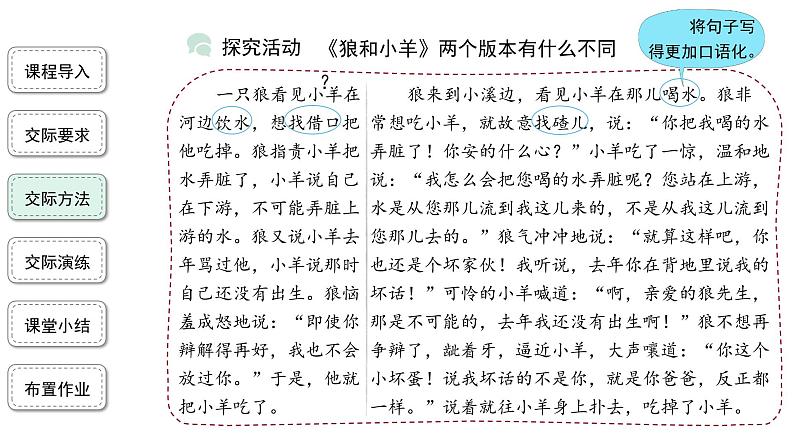 将句子写
得更加口语化。
探究活动 《狼和小羊》两个版本有什么不同
?
课程导入
交际要求
交际方法
交际演练
课堂小结
布置作业
一只狼看见小羊在
河边饮水，想找借口把
他吃掉。狼指责小羊把
水弄脏了，小羊说自己
在下游，不可能弄脏上
游的水。狼又说小羊去
年骂过他，小羊说那时
自己还没有出生。狼恼
羞成怒地说：“即使你
辩解得再好，我也不会
放过你。”于是，他就
把小羊吃了。
狼来到小溪边，看见小羊在那儿喝水。狼非
常想吃小羊，就故意找碴儿，说：“你把我喝的水
弄脏了！你安的什么心？”小羊吃了一惊，温和地
说：“我怎么会把您喝的水弄脏呢？您站在上游，
水是从您那儿流到我这儿来的，不是从我这儿流到
您那儿去的。”狼气冲冲地说：“就算这样吧，你
也还是个坏家伙！我听说，去年你在背地里说我的
坏话！”可怜的小羊喊道：“啊，亲爱的狼先生，
那是不可能的，去年我还没有出生啊！”狼不想再
争辩了，龇着牙，逼近小羊，大声嚷道：“你这个
小坏蛋！说我坏话的不是你，就是你爸爸，反正都
一样。”说着就往小羊身上扑去，吃掉了小羊。